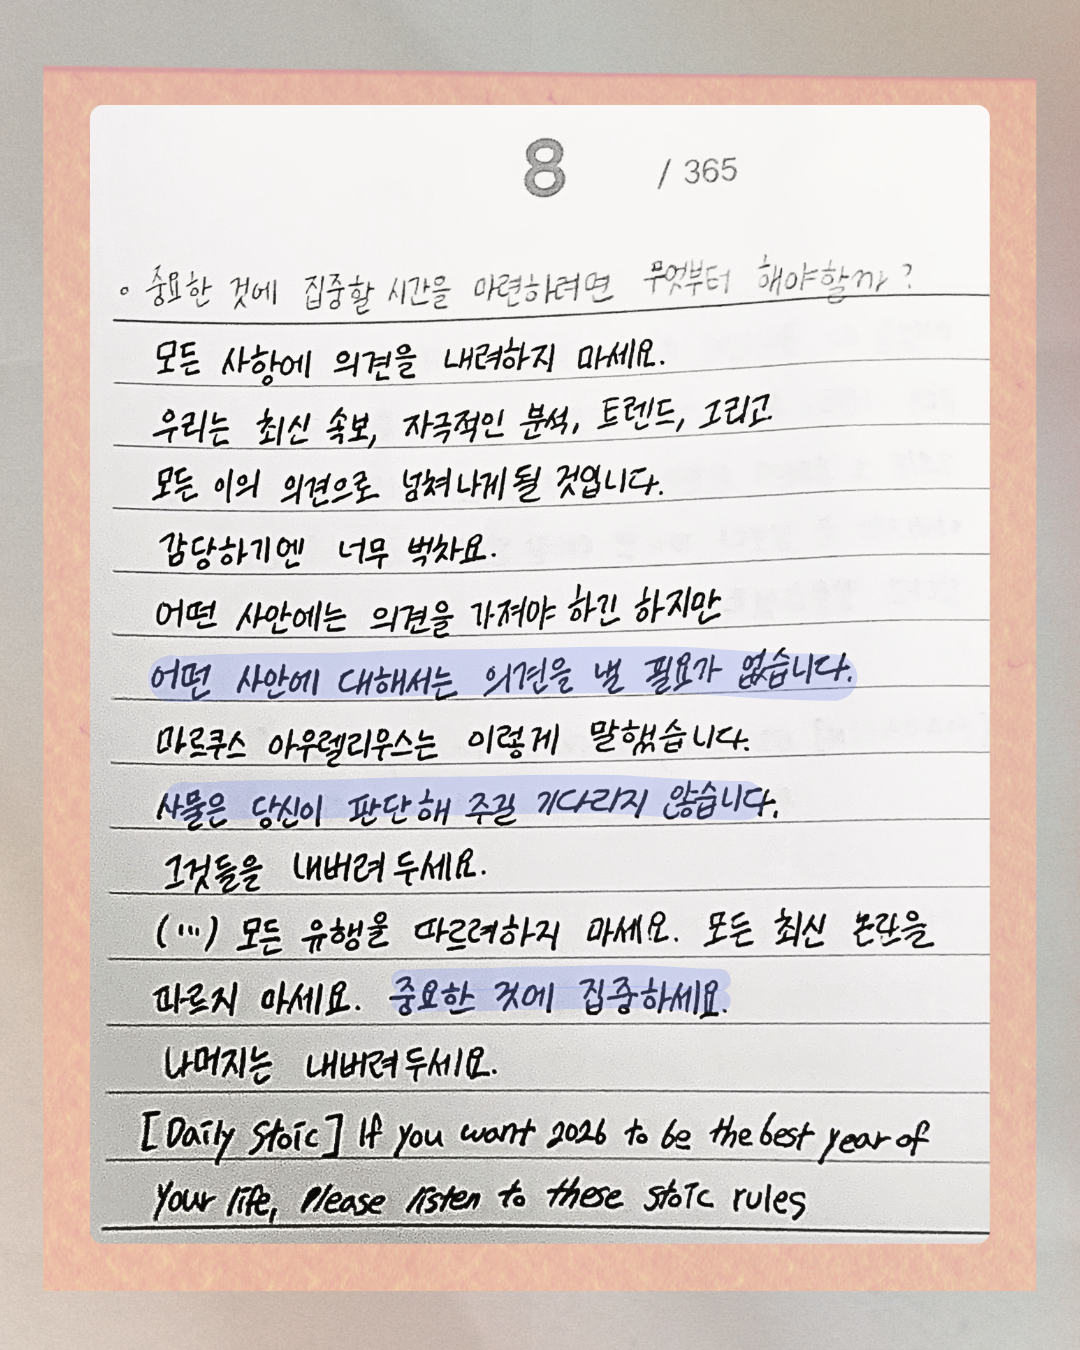 8 / 365
◦ 중요한 것에 집중할 시간을 마련하려면 무엇부터 해야할까?
모든 사항에 의견을 내려하지 마세요.
우리는 최신 속보, 자극적인 분석, 트렌드, 그리고
모든 이의 의견으로 넘쳐나게 될 것입니다.
감당하기엔 너무 벅차요.
어떤 사안에는 의견을 가져야 하긴 하지만
어떤 사안에 대해서는 의견을 낼 필요가 없습니다.
마르쿠스 아우렐리우스는 이렇게 말했습니다.
사물은 당신이 판단해 주길 기다리지 않습니다.
그것들을 내버려 두세요.
(...) 모든 유행을 따르려하지 마세요. 모든 최신 논란을
따르지 마세요. 중요한 것에 집중하세요.
나머지는 내버려 두세요.
[Daily Stoic] If you want 2026 to be the best year of
your life, Please listen to these stoic rules